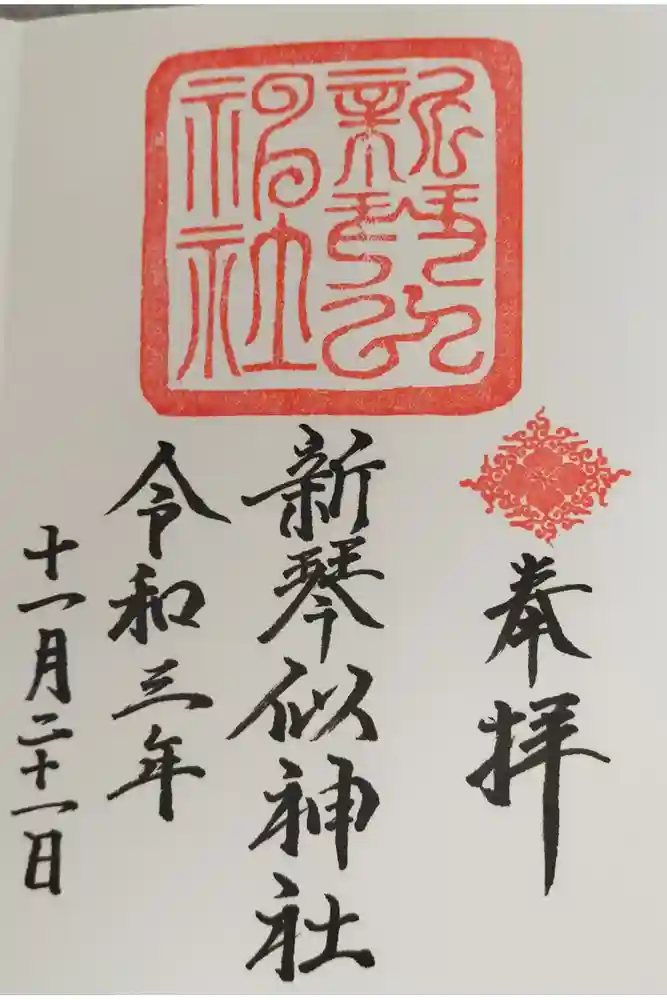 奉拝
新琴似神社
令和三年
十一月二十一日
新琴似
神社